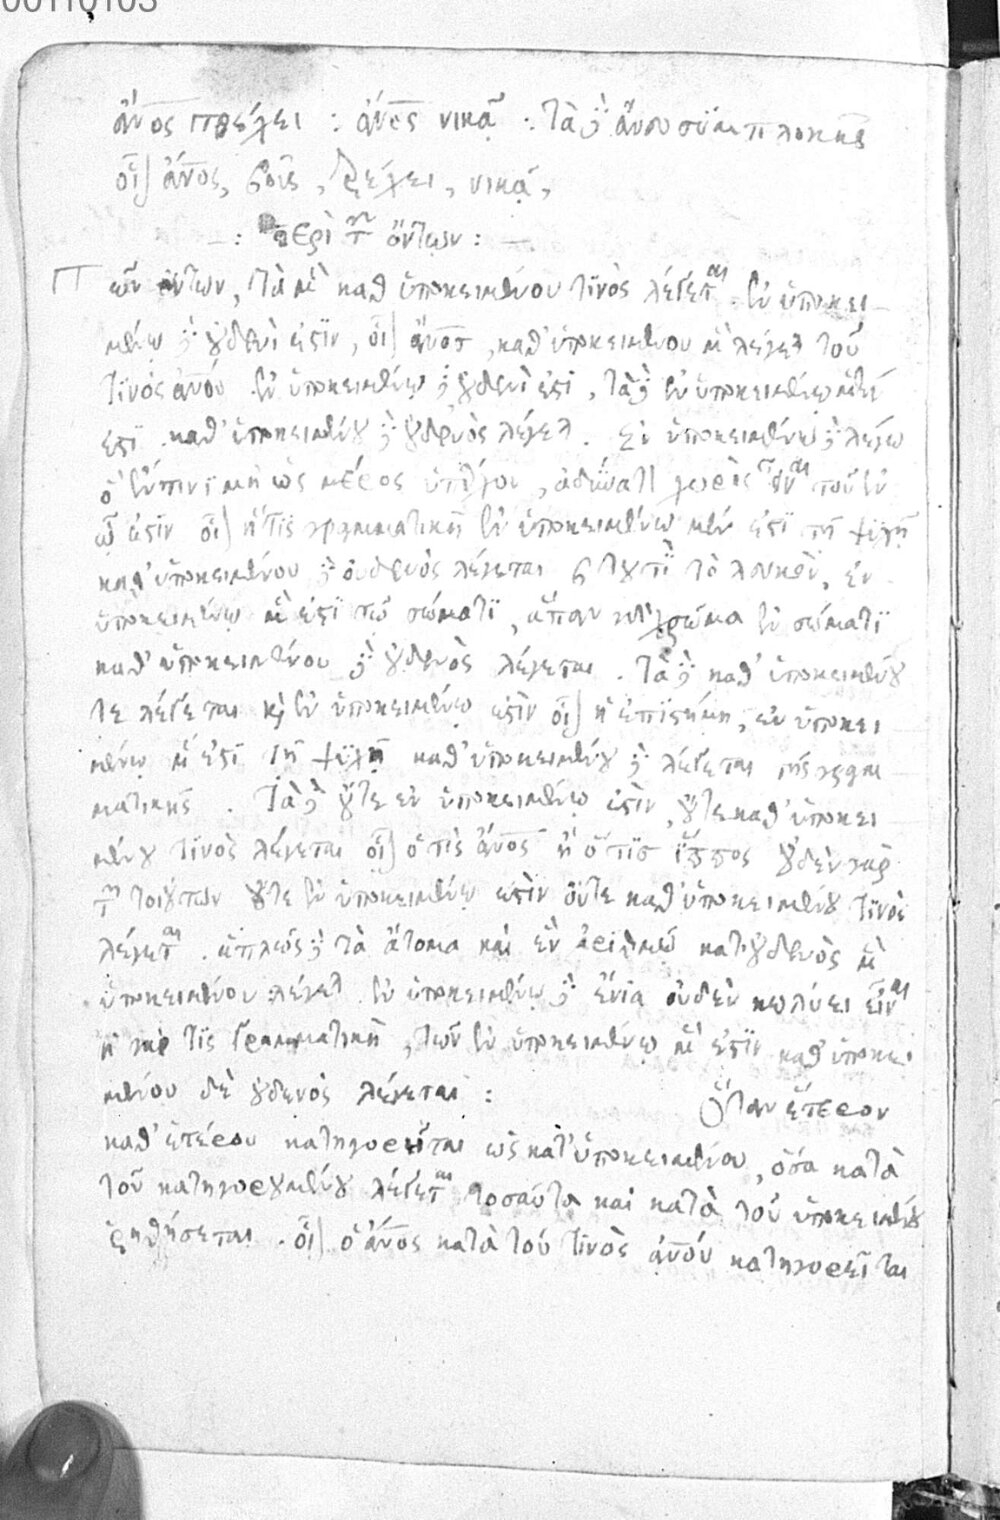 00110103
ἄνος τρέχει : ἄνος νικᾷ : τὰ δὲ ἄνευ συμπλοκῆς
οἷον ἄνος, βοῦς, τρέχει, νικᾷ,
: περὶ τῶν ὄντων :
τῶν ὄντων, τὰ μὲν καθ' ὑποκειμένου τινὸς λέγεται ἐν ὑποκει
μένῳ δὲ οὐδενί ἐστιν, οἷον ἄνος, καθ' ὑποκειμένου μὲν λέγεται τοῦ
τινὸς ἀνου ἐν ὑποκειμένῳ δὲ οὐδενί ἐστι, τὰ δὲ ἐν ὑποκειμένῳ μέν
ἐστι καθ' ὑποκειμένου δὲ οὐδενὸς λέγεται. ἐν ὑποκειμένῳ δὲ λέγω
ὃ ἔν τινι μὴ ὡς μέρος ὑπάρχον, ἀδύνατον χωρὶς εἶναι τοῦ ἐν
ᾧ ἐστιν οἷον ἡ τὶς γραμματικὴ ἐν ὑποκειμένῳ μέν ἐστι τῇ ψυχῇ
καθ' ὑποκειμένου δὲ οὐδενὸς λέγεται καὶ τὸ τὶ τὸ λευκὸν, ἐν
ὑποκειμένῳ μέν ἐστι τῷ σώματι, ἅπαν γὰρ χρῶμα ἐν σώματι
καθ' ὑποκειμένου δὲ οὐδενὸς λέγεται. τὰ δὲ καθ' ὑποκειμένου
τε λέγεται καὶ ἐν ὑποκειμένῳ ἐστὶν οἷον ἡ ἐπιστήμη, ἐν ὑποκει
μένῳ μέν ἐστι τῇ ψυχῇ καθ' ὑποκειμένου δὲ λέγεται τῆς γραμ
ματικῆς. τὰ δὲ οὔτε ἐν ὑποκειμένῳ ἐστὶν, οὔτε καθ' ὑποκει
μένου τινὸς λέγεται οἷον ὁ τὶς ἄνος ἢ ὁ τὶς ἵππος οὐδὲν γὰρ
τῶν τοιούτων οὔτε ἐν ὑποκειμένῳ ἐστὶν οὔτε καθ' ὑποκειμένου τινὸς
λέγεται. ἁπλῶς δὲ τὰ ἄτομα καὶ ἓν ἀριθμῷ κατ' οὐδενὸς μὲν
ὑποκειμένου λέγεται ἐν ὑποκειμένῳ δὲ ἔνια οὐδὲν κωλύει εἶναι
ἡ γὰρ τὶς γραμματικὴ, τῶν ἐν ὑποκειμένῳ μέν ἐστιν καθ' ὑποκει
μένου δὲ οὐδενὸς λέγεται : Ὅταν ἕτερον
καθ' ἑτέρου κατηγορῆται ὡς καθ' ὑποκειμένου, ὅσα κατὰ
τοῦ κατηγορουμένου λέγεται τοσαῦτα καὶ κατὰ τοῦ ὑποκειμένου
ῥηθήσεται. οἷον ὁ ἄνος κατὰ τοῦ τινὸς ἀνου κατηγορεῖται